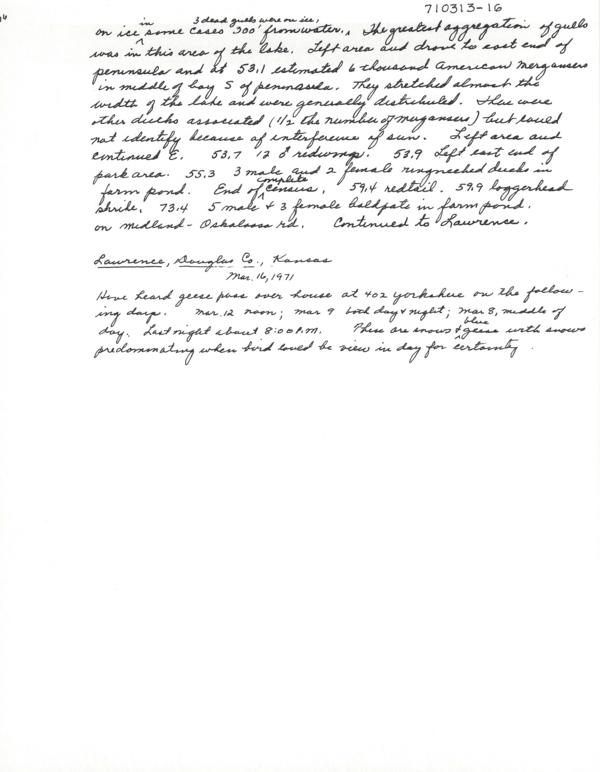 710313-16
on ice in some cases 300' from water. 3 dead gulls were on ice. The greatest aggregation of gulls
was in this area of the lake. Left area and drove to east end of
peninsula and at 53.1 estimated 6 thousand American Mergansers
in middle of bay S of peninsula. They stretched almost the
width of the lake and were generally distributed. There were
other ducks associated (1/2 the number of mergansers) but could
not identify because of interference of sun. Left area and
continued E. 53.7 12 ♂ redwings. 53.9 Left east end of
park area. 55.3 3 male and 2 female ringnecked ducks in
farm pond. End of complete census. 59.4 redtail. 59.9 loggerhead
shrike. 73.4 5 male & 3 female baldpate in farm pond.
on midland - Oskaloosa rd. Continued to Lawrence.
Lawrence, Douglas Co., Kansas
Mar. 16, 1971
Have heard geese pass over house at 402 yorkshire on the follow-
ing days. Mar. 12 noon; mar 9 both day & night; mar 8, middle of
day. Last night about 8:00 P.M. These are snows & blue geese with snows
predominating when bird could be view in day for certainty.